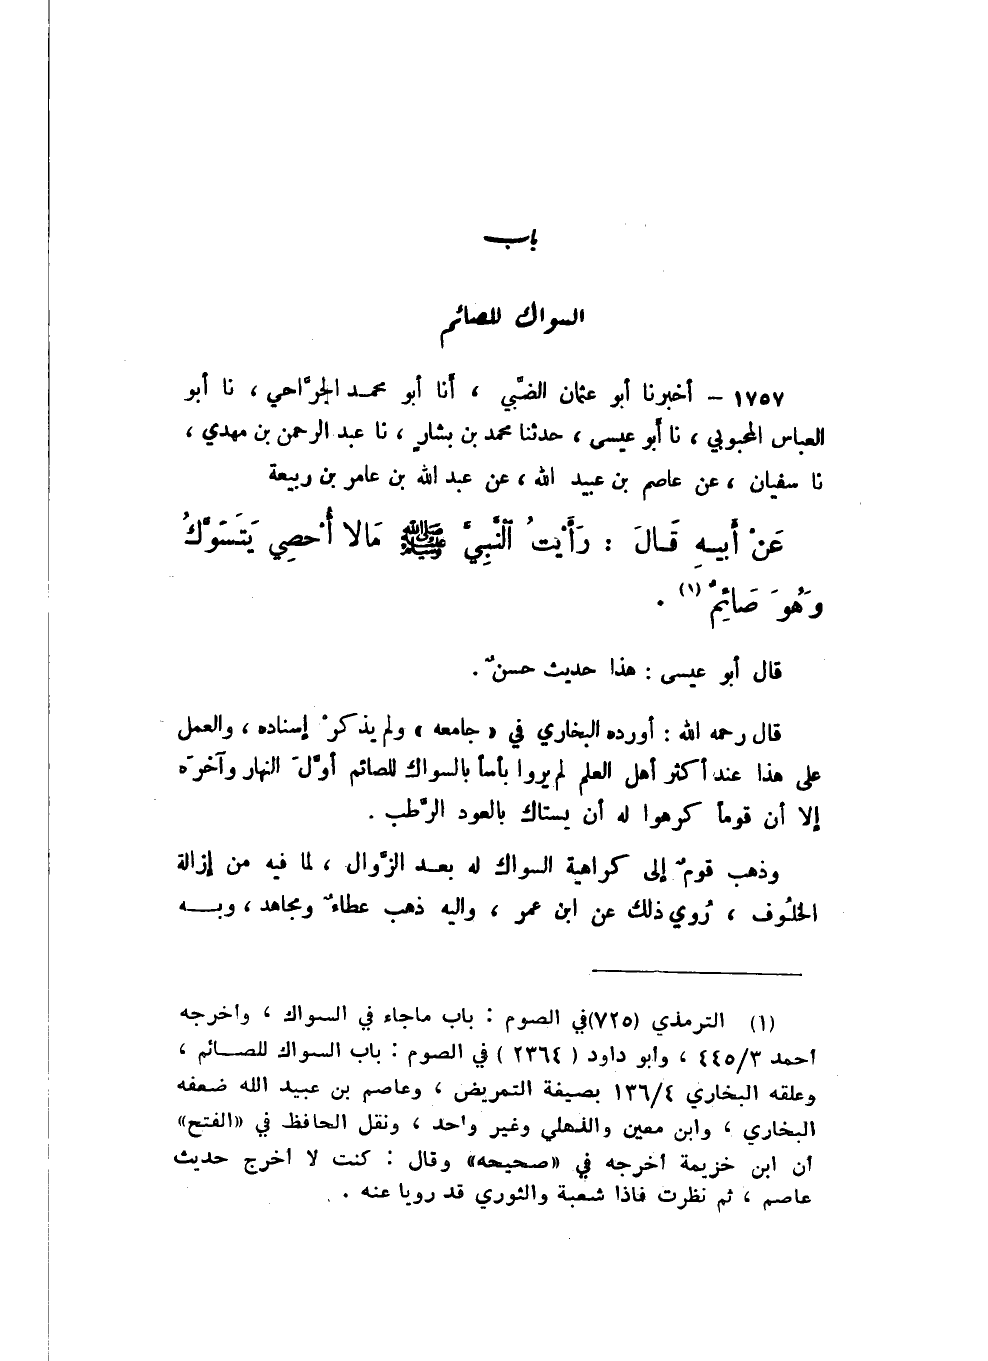 باب
السواك للصائم
١٧٥٧ – أخبرنا أبو عثمان الضَّبِّي ، أنا أبو محمـد الجرَّاحي ، نا أبو
العباس المحبوبي ، نا أبو عيسى ، حدثنا محمد بن بشارٍ ، نا عبد الرحمن بن مهدي ،
نا سفيان ، عن عاصم بن عبيد الله ، عن عبد الله بن عامر بن ربيعة
عَنْ أَبِيـهِ قَـالَ : رَأَيْتُ النَّبِيَّ ﷺ مَالا أُحْصِي يَتَسَوَّكُ
وَهُوَ صَائِمٌ (١) .
قال أبو عيسى : هذا حديث حسنٌ .
قال رحمه الله : أورده البخاري في « جامعه » ولم يذكرْ إسناده ، والعمل
على هذا عند أكثر أهل العلم لم يروا بأساً بالسواك للصائم أوَّلَ النهار وآخرَه
إلا أن قوماً كرهوا له أن يستاك بالعود الرَّطب .
وذهب قومٌ إلى كراهية السواك له بعـد الزَّوال ، لما فيه من إزالة
الخلُوف ، رُوي ذلك عن ابن عمر ، واليه ذهب عطاءٌ ومجاهد ، وبـــه
(١) الترمذي (٧٢٥)في الصوم : باب ماجاء في السواك ، وأخرجه
أحمد ٤٤٥/٣ ، وأبو داود ( ٢٣٦٤ ) في الصوم : باب السواك للصــائم ،
وعلقه البخاري ١٣٦/٤ بصيغة التمريض ، وعاصم بن عبيد الله ضعفه
البخاري ، وابن معين والذهلي وغير واحد ، ونقل الحافظ في «الفتح»
أن ابن خزيمة أخرجه في «صحيحه» وقال : كنت لا أخرج حديث
عاصم ، ثم نظرت فاذا شعبة والثوري قد رويا عنه .